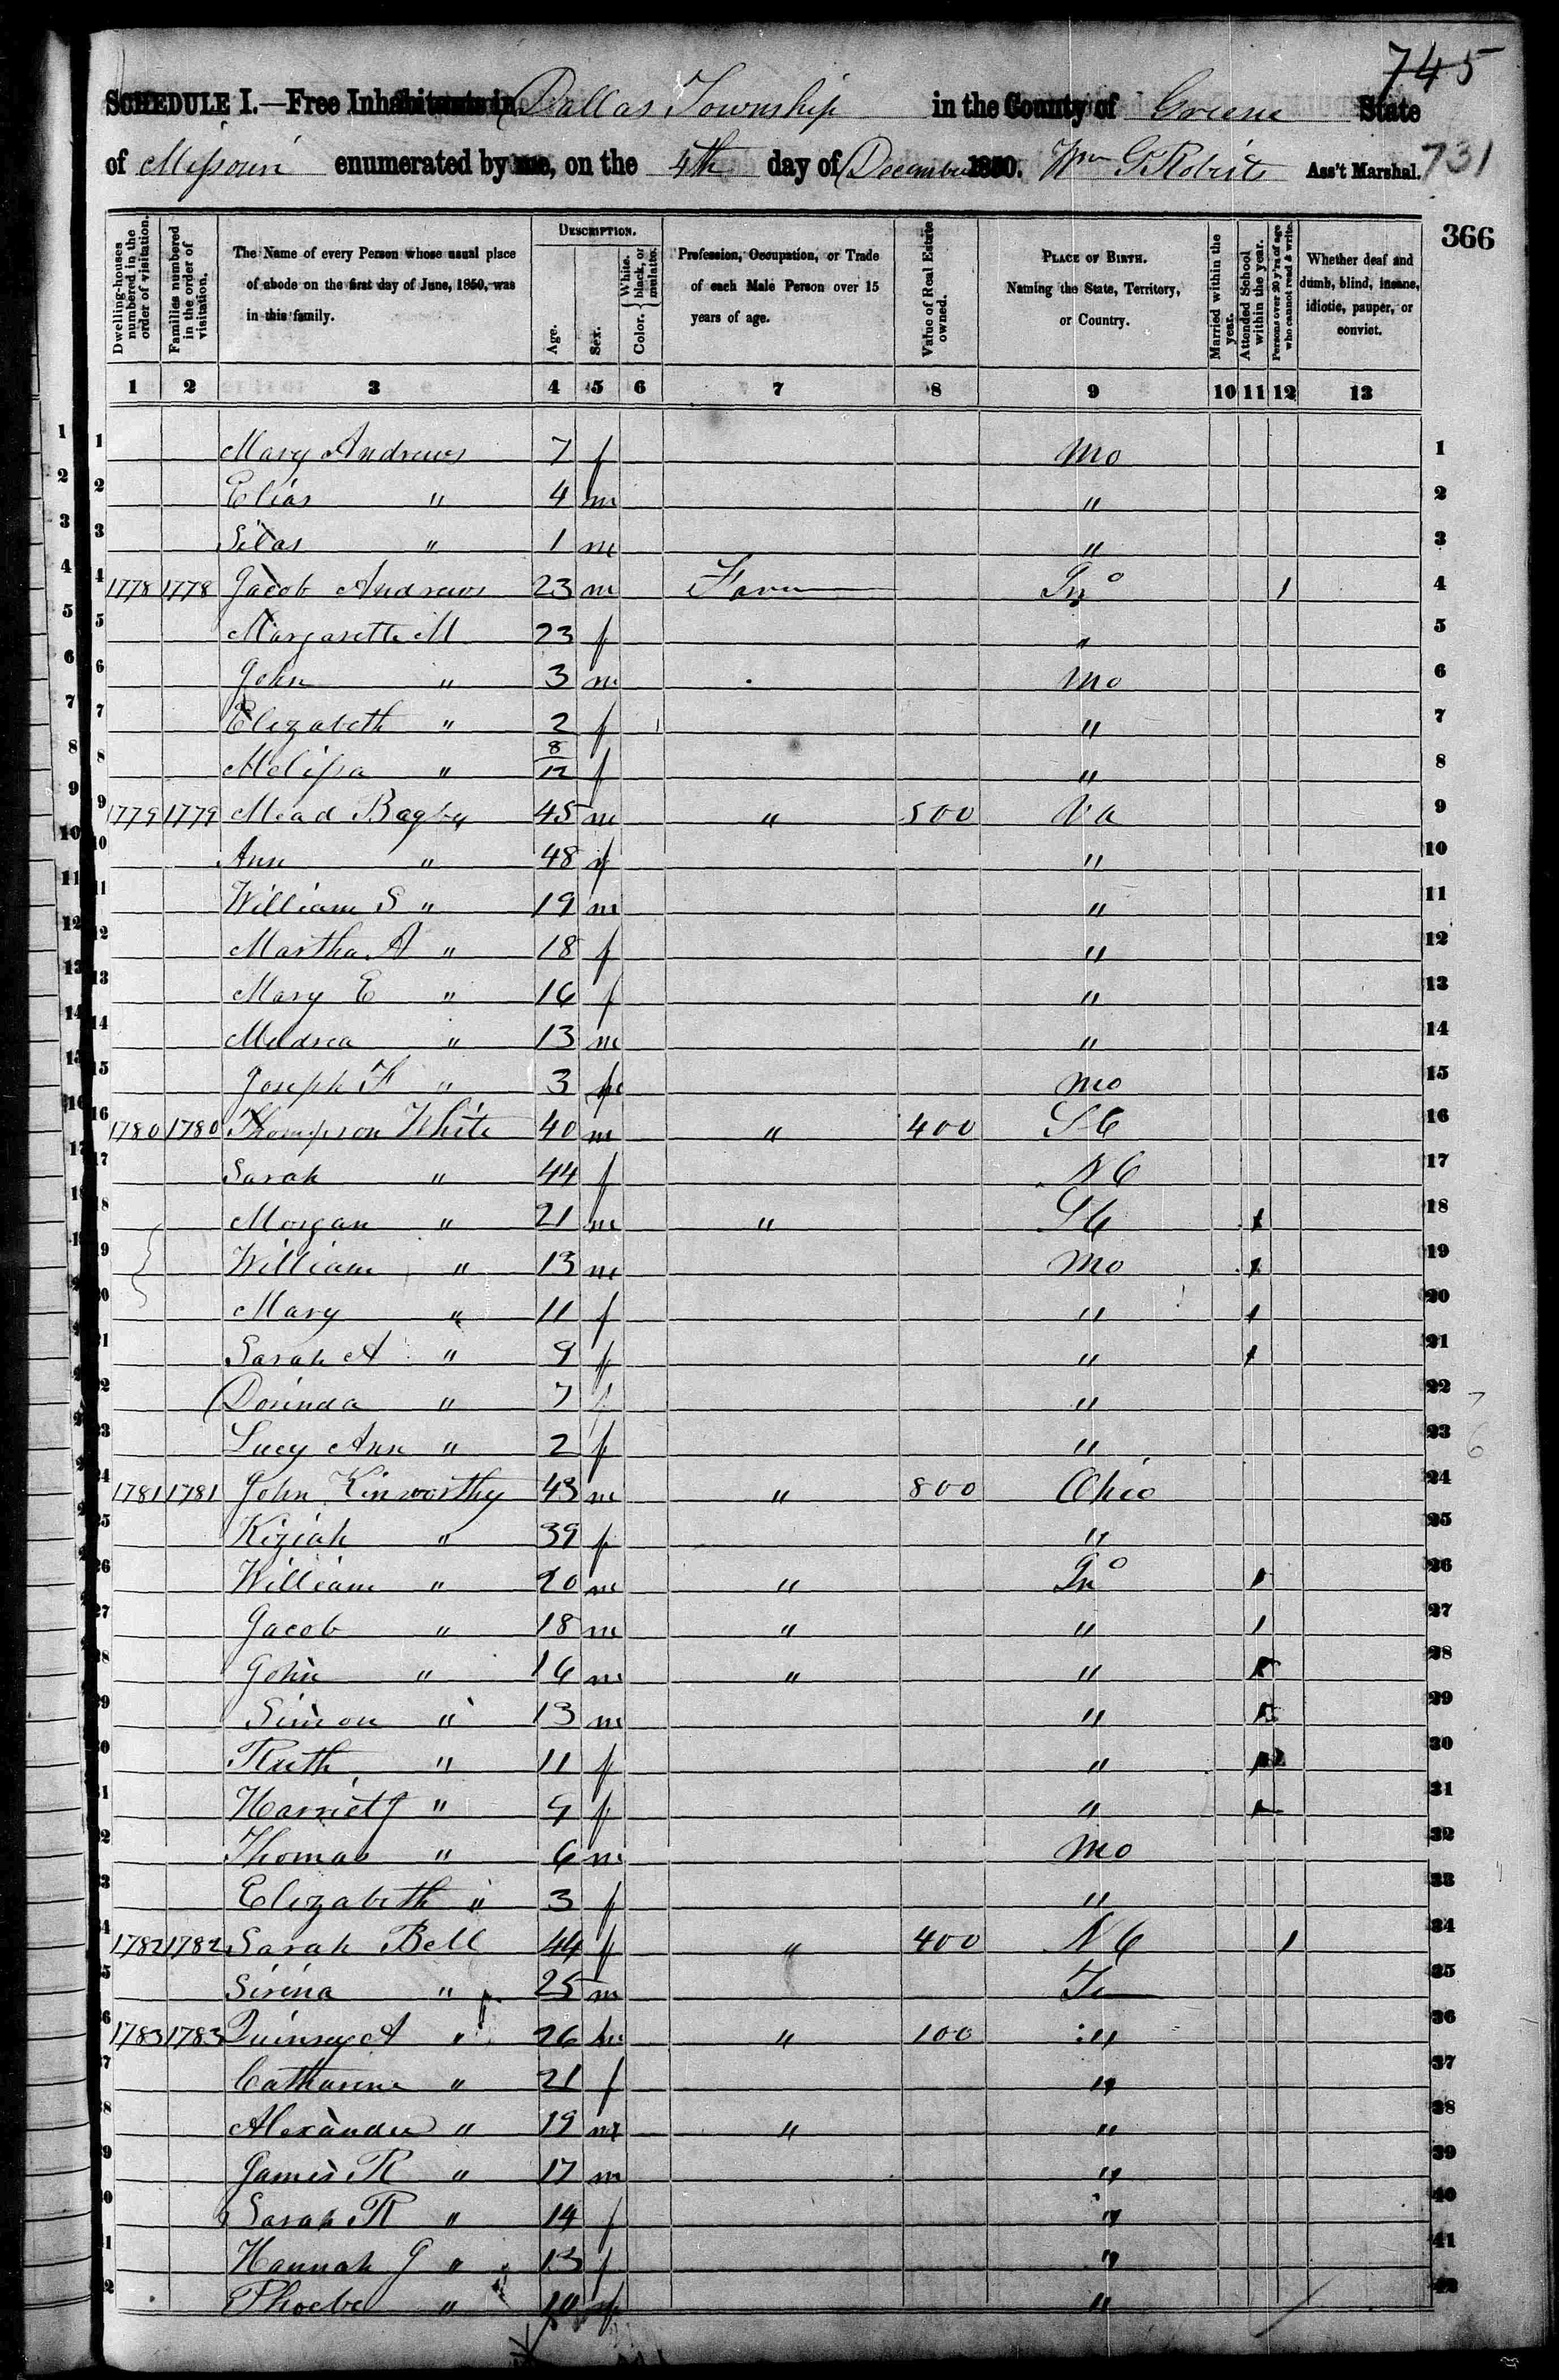 745
SCHEDULE I.—Free Inhabitants in Dallas Township in the County of Greene State
of Missouri enumerated by me, on the 4th day of December 1850. Wm G Roberts Ass't Marshal. 731
366
Dwelling-houses numbered in the order of visitation. Families numbered in the order of visitation. The Name of every Person whose usual place of abode on the first day of June, 1850, was in this family. DESCRIPTION. Age. Sex. Color. White, black, or mulatto. Profession, Occupation, or Trade of each Male Person over 15 years of age. Value of Real Estate owned. PLACE OF BIRTH. Naming the State, Territory, or Country. Married within the year. Attended School within the year. Persons over 20 y'rs of age who cannot read & write. Whether deaf and dumb, blind, insane, idiotic, pauper, or convict.
1 2 3 4 5 6 7 8 9 10 11 12 13
1 Mary Andrews 7 f Mo 1
2 Elias " 4 m " 2
3 Silas " 1 m " 3
4 1778 1778 Jacob Andrews 23 m Farmer Ino 1 4
5 Margarette M 23 f " 5
6 John " 3 m Mo 6
7 Elizabeth " 2 f " 7
8 Melissa " 8/12 f " 8
9 1779 1779 Mead Bagby 45 m " 500 Va 9
10 Ann " 48 f " 10
11 William S " 19 m " 11
12 Martha A " 18 f " 12
13 Mary E " 16 f " 13
14 " 13 m " 14
15 Joseph F " 3 m Mo 15
16 1780 1780 Thompson White 40 m " 400 SC 16
17 Sarah " 44 f NC 17
18 Morgan " 21 m " SC 1 18
19 William " 13 m Mo 1 19
20 Mary " 11 f " 1 20
21 Sarah A " 9 f " 1 21
22 Dorinda " 7 f " 22
23 Lucy Ann " 2 f " 23
24 1781 1781 John Kinworthy 43 m " 800 Ohio 24
25 Kiziah " 39 f " 25
26 William " 20 m " Ino 1 26
27 Jacob " 18 m " " 1 27
28 John " 16 m " " 1 28
29 Simon " 13 m " 1 29
30 Ruth " 11 f " 1 30
31 Harriet J " 9 f " 1 31
32 Thomas " 6 m Mo 32
33 Elizabeth " 3 f " 33
34 1782 1782 Sarah Bell 44 f " 400 NC 1 34
35 Sirena " 25 m Te 35
36 1783 1783 Quinsey A " 26 m " 100 " 36
37 Catharine " 21 f " 37
38 Alexander " 19 m " " 38
39 James R " 17 m " 39
40 Sarah R " 14 f " 40
41 Hannah J " 13 f " 41
42 Phoebe " 10 f " 42